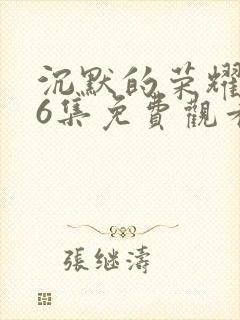 沉默的荣耀
6集免費觀看
張继濤